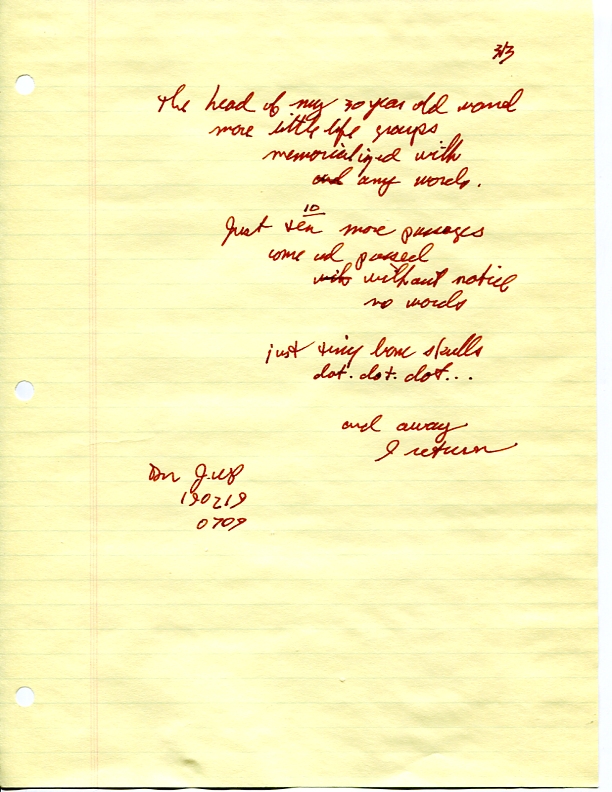 3/3
the head of my 30 year old
more little life groups
memorialized with
and any words.
10
Just ten more passages
come and passed
without notice
no words
just tiny bone skulls
dot. dot. dot...
and away
I return
190219
0709